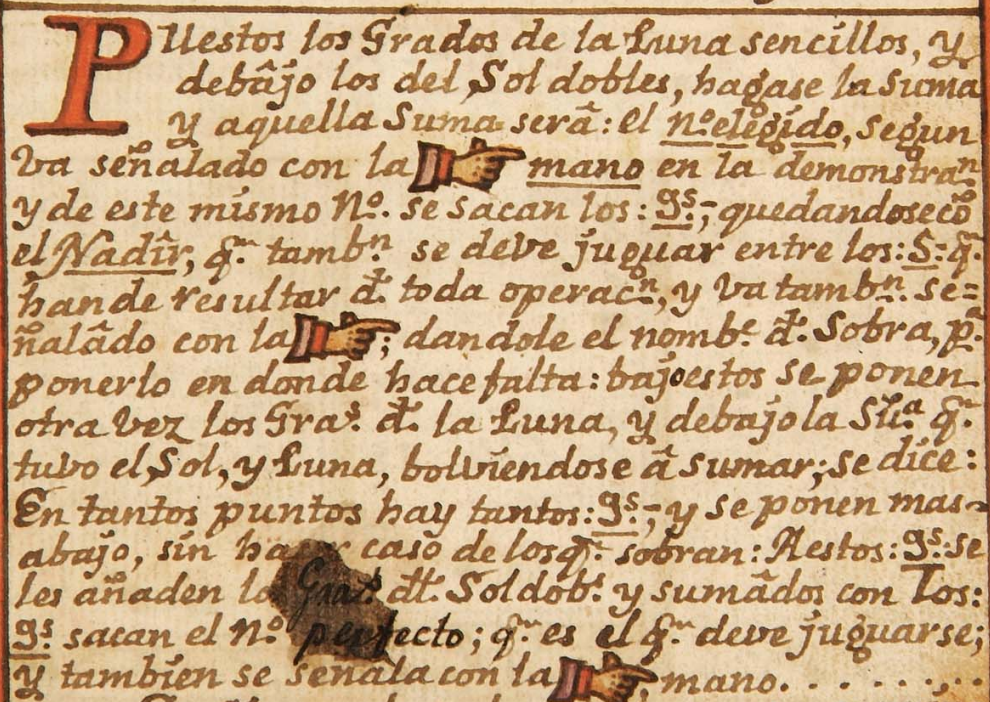 PUestos los Grados de la Luna sencillos, y
debâjo los del Sol dobles, hagase la Suma
y aquella Suma serâ: el nº. elegido, segun
va señalado con la mano en la demonstraⁿ
y de este mismo Nº. se sacan los: gˢ.; quedandose cõ
el Nadîr, q̃. tambⁿ. se deve juguar entre los: S: q̃.
hande resultar d̃. toda operacⁿ., y va tambⁿ. se=
ñalâdo con la ; dandole el nombᵉ. d̃. Sobra, p̃.
ponerlo en donde hace falta: bajo estos se ponen
otra vez los Graˢ. d̃. la Luna, y debajo la q̃.
tubo el Sol, y Luna, bolviendose â sumar; se dice:
En tantos puntos hay tantos: gˢ.; y se ponen mas
abajo, sin hacer caso de los q̃. sobran: A estos: gˢ. se
les añaden lo Graˢ. dłł. Sol dobˢ. y sumâdos con los:
gˢ. sacan el nº. perfecto; q̃. es el q̃. deve juguarse;
y tambien se señala con la mano. . . . . . . .